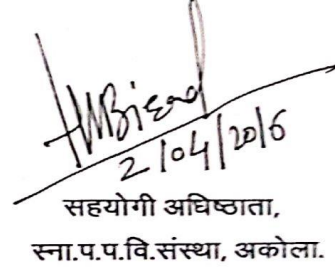 2/04/2016
सहयोगी अधिष्ठाता,
स्ना.प.प.वि.संस्था, अकोला.